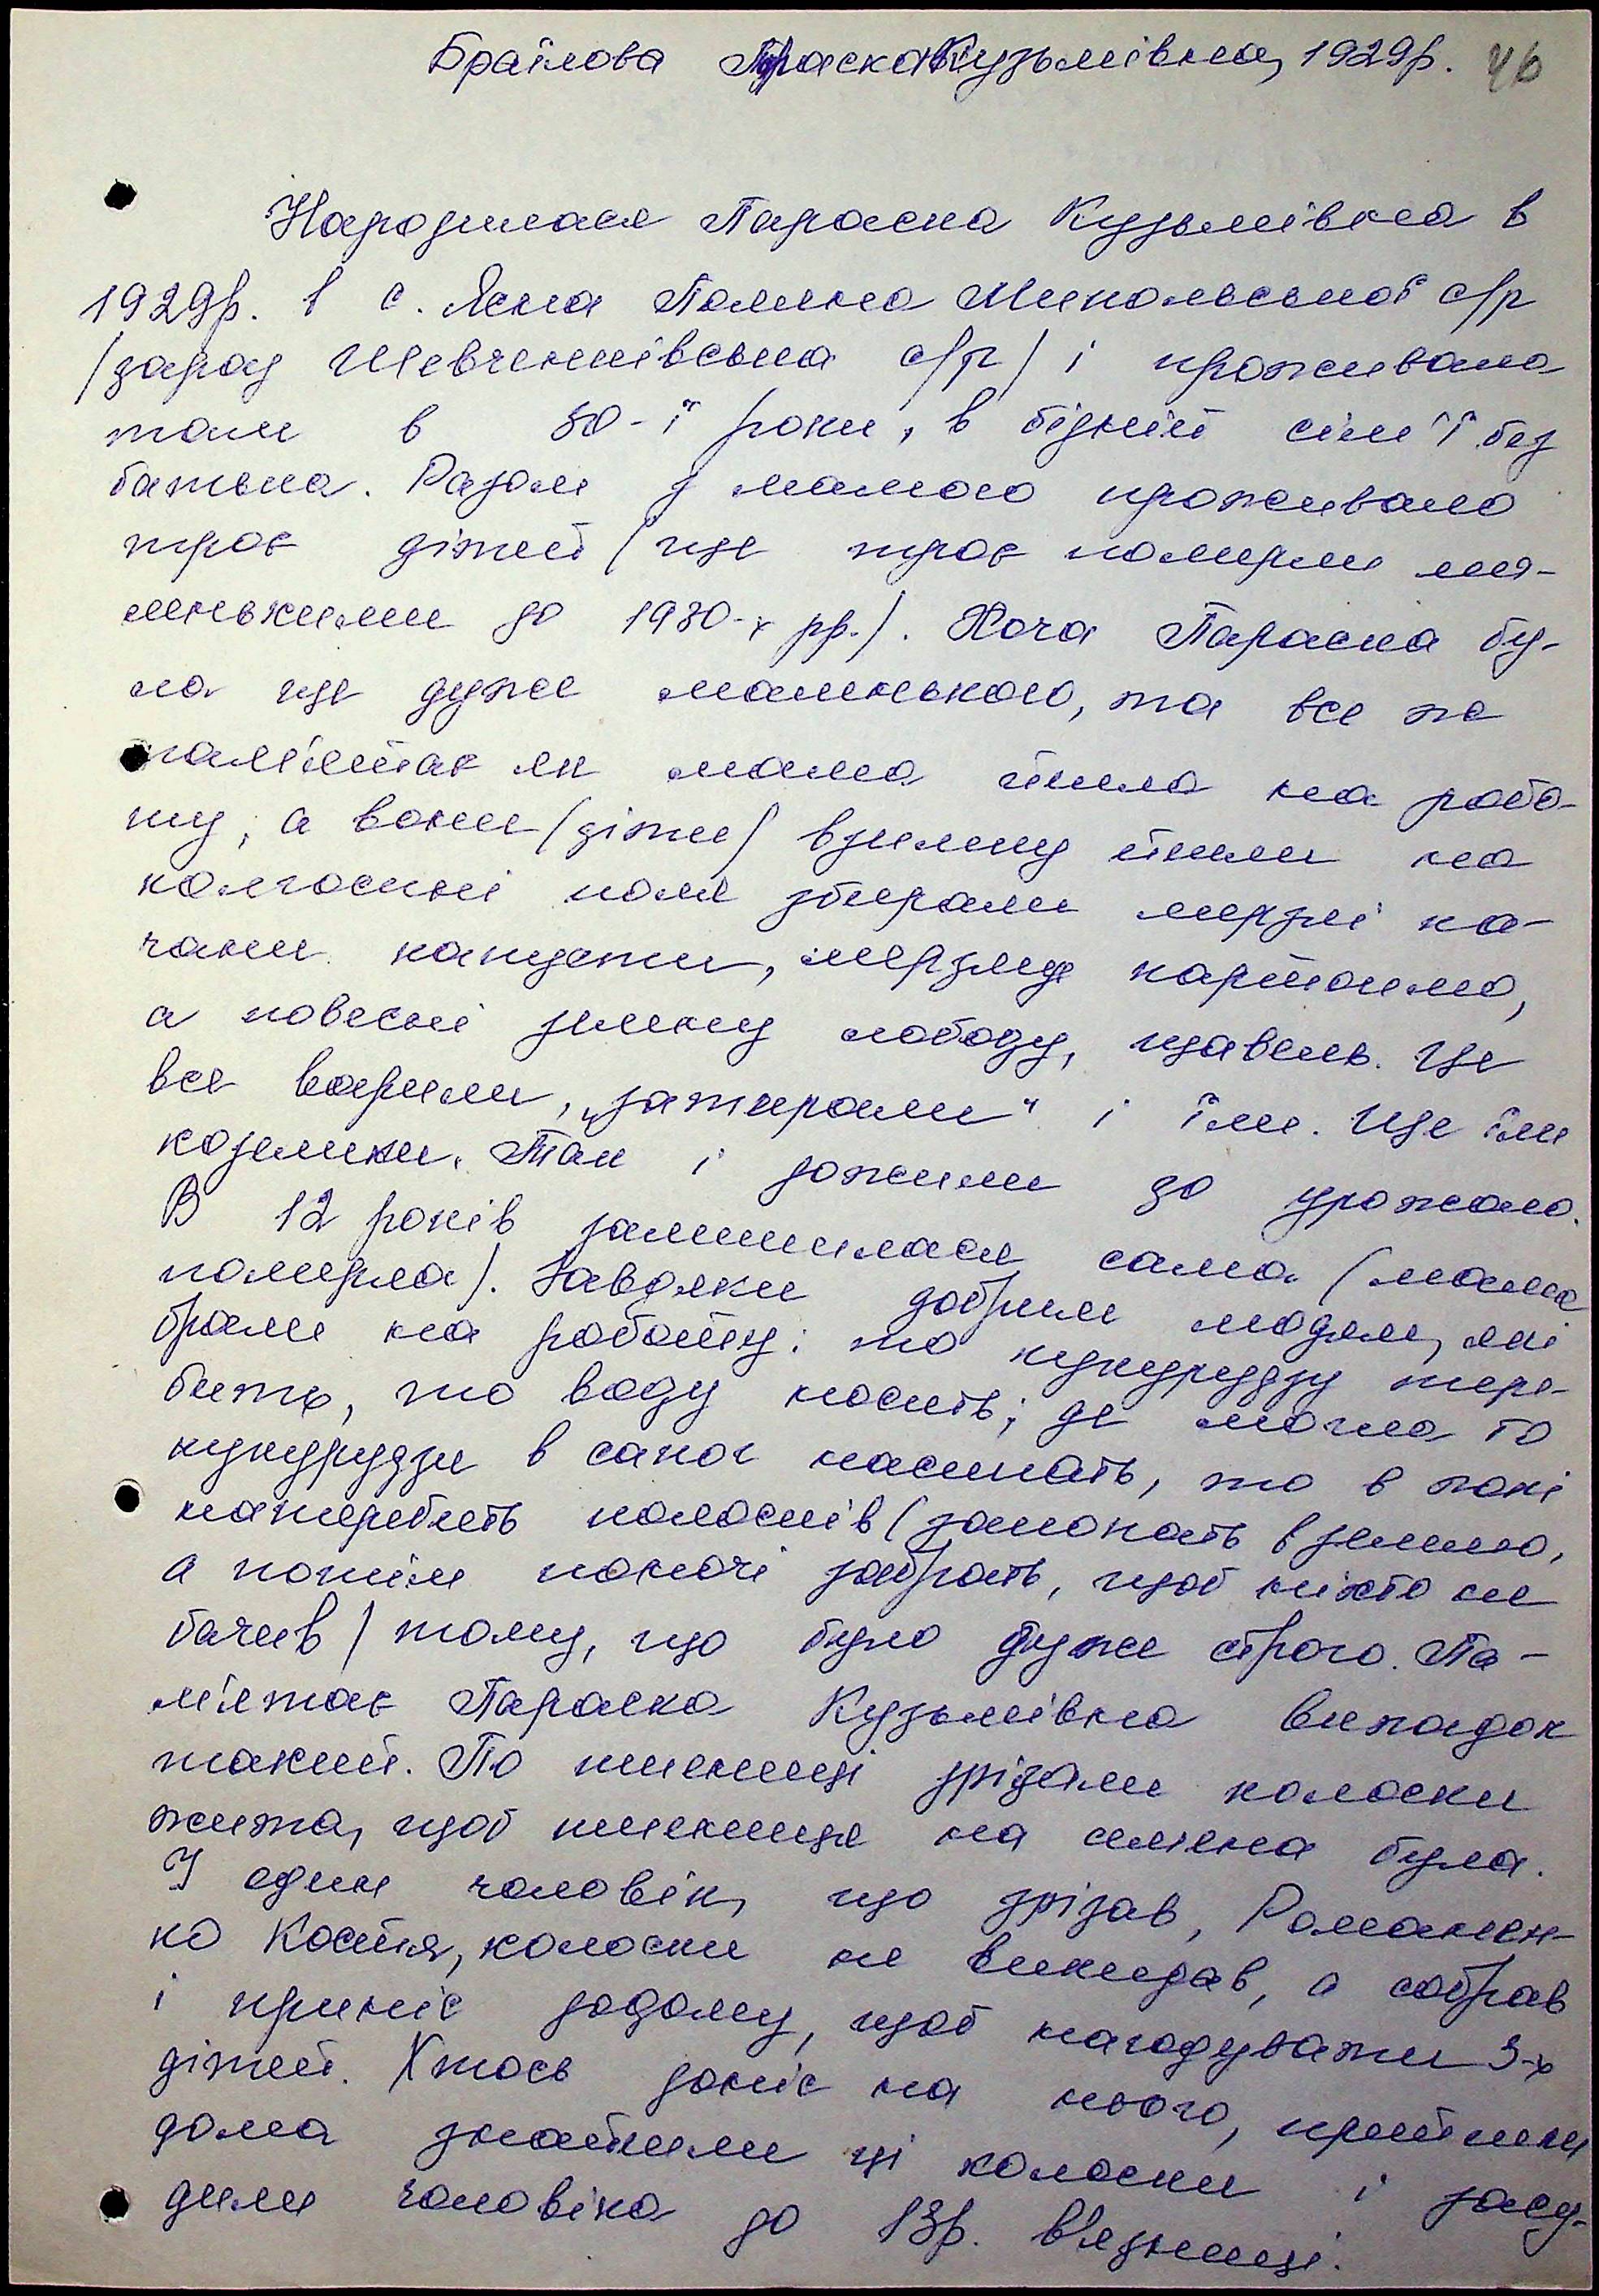 Браїлова Параска Кузьмівна, 1929р. 46
Народилася Параска Кузьмівна в
1929р. в с. Ясна Поляна Микольської с/р
/зараз Шевченківська с/р/ і проживала
там в 30-ї роки, в бідній сім'ї без
батька. Разом з мамою проживало
троє дітей /ще троє померли ма-
ленькими до 1930-х рр./. Хоча Параска бу-
ла ще дуже маленькою, та все же
пам'ятає як мама йшла на робо-
ту, а вони /діти/ взимку йшли на
колгоспні поля збирали мерзлі ка-
чани капусти, мерзлу картоплю,
а повесні зелену лободу, щавель. Це
все варили, „затирали" і їли. Ще їли
козелики. Так і дожили до урожаю.
В 12 років залишилася сама (мама
померла). Завдяки добрим людям, які
брали на роботу: то кукурудзу тере-
бить, то воду носить; де могла то
кукурудзи в сапог насипать, то в полі
натеребить колосків (закопать в землю,
а потім поночі забрать, щоб ніхто не
бачив/ тому, що було дуже строго. Па-
м'ятає Параска Кузьмівна випадок
такий. По пшениці зрізали колоски
жита, щоб пшениця на семена була.
І один чоловік, що зрізав, Романен-
ко Костя, колоски не викидав, а собрав
і приніс додому, щоб нагодувати 3-х
дітей. Хтось доніс на нього, прийшли
дома знайшли ці колоски і засу-
дили чоловіка до 13р. в'язниці.